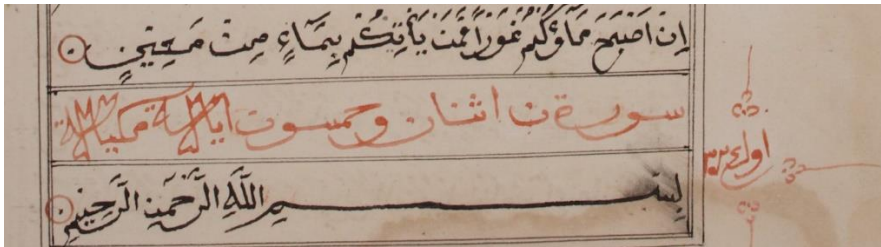 إِنْ اَصْبَحَ مَآؤُكُمْ غَوْرًا فَمَنْ يَأْتِيكُمْ بِمَآءٍ مِنْ مَعِينٍ
سورة ن اثنان وخمسون اياتة مكية
بِسْمِ اللَّهِ الرَّحْمَنِ الرَّحِيمِ